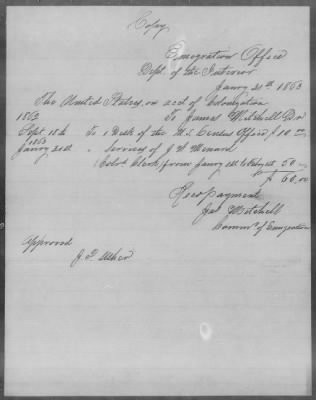 Copy
Emigration Office
Dept. of the Interior
Janry 21st 1863
The United States, on acct of Colonization
1862 To James Mitchell Dr
Sept. 18th To 1 Desk of the U.S. Census Office $10.00
1863
Janry 21st " Services of J. W. Menard
(Cold Clerk) from Janry 1st to 50.00
$60.00
Recd payment
Jas Mitchell
Commr of Emigration
Approved
J. P. Usher